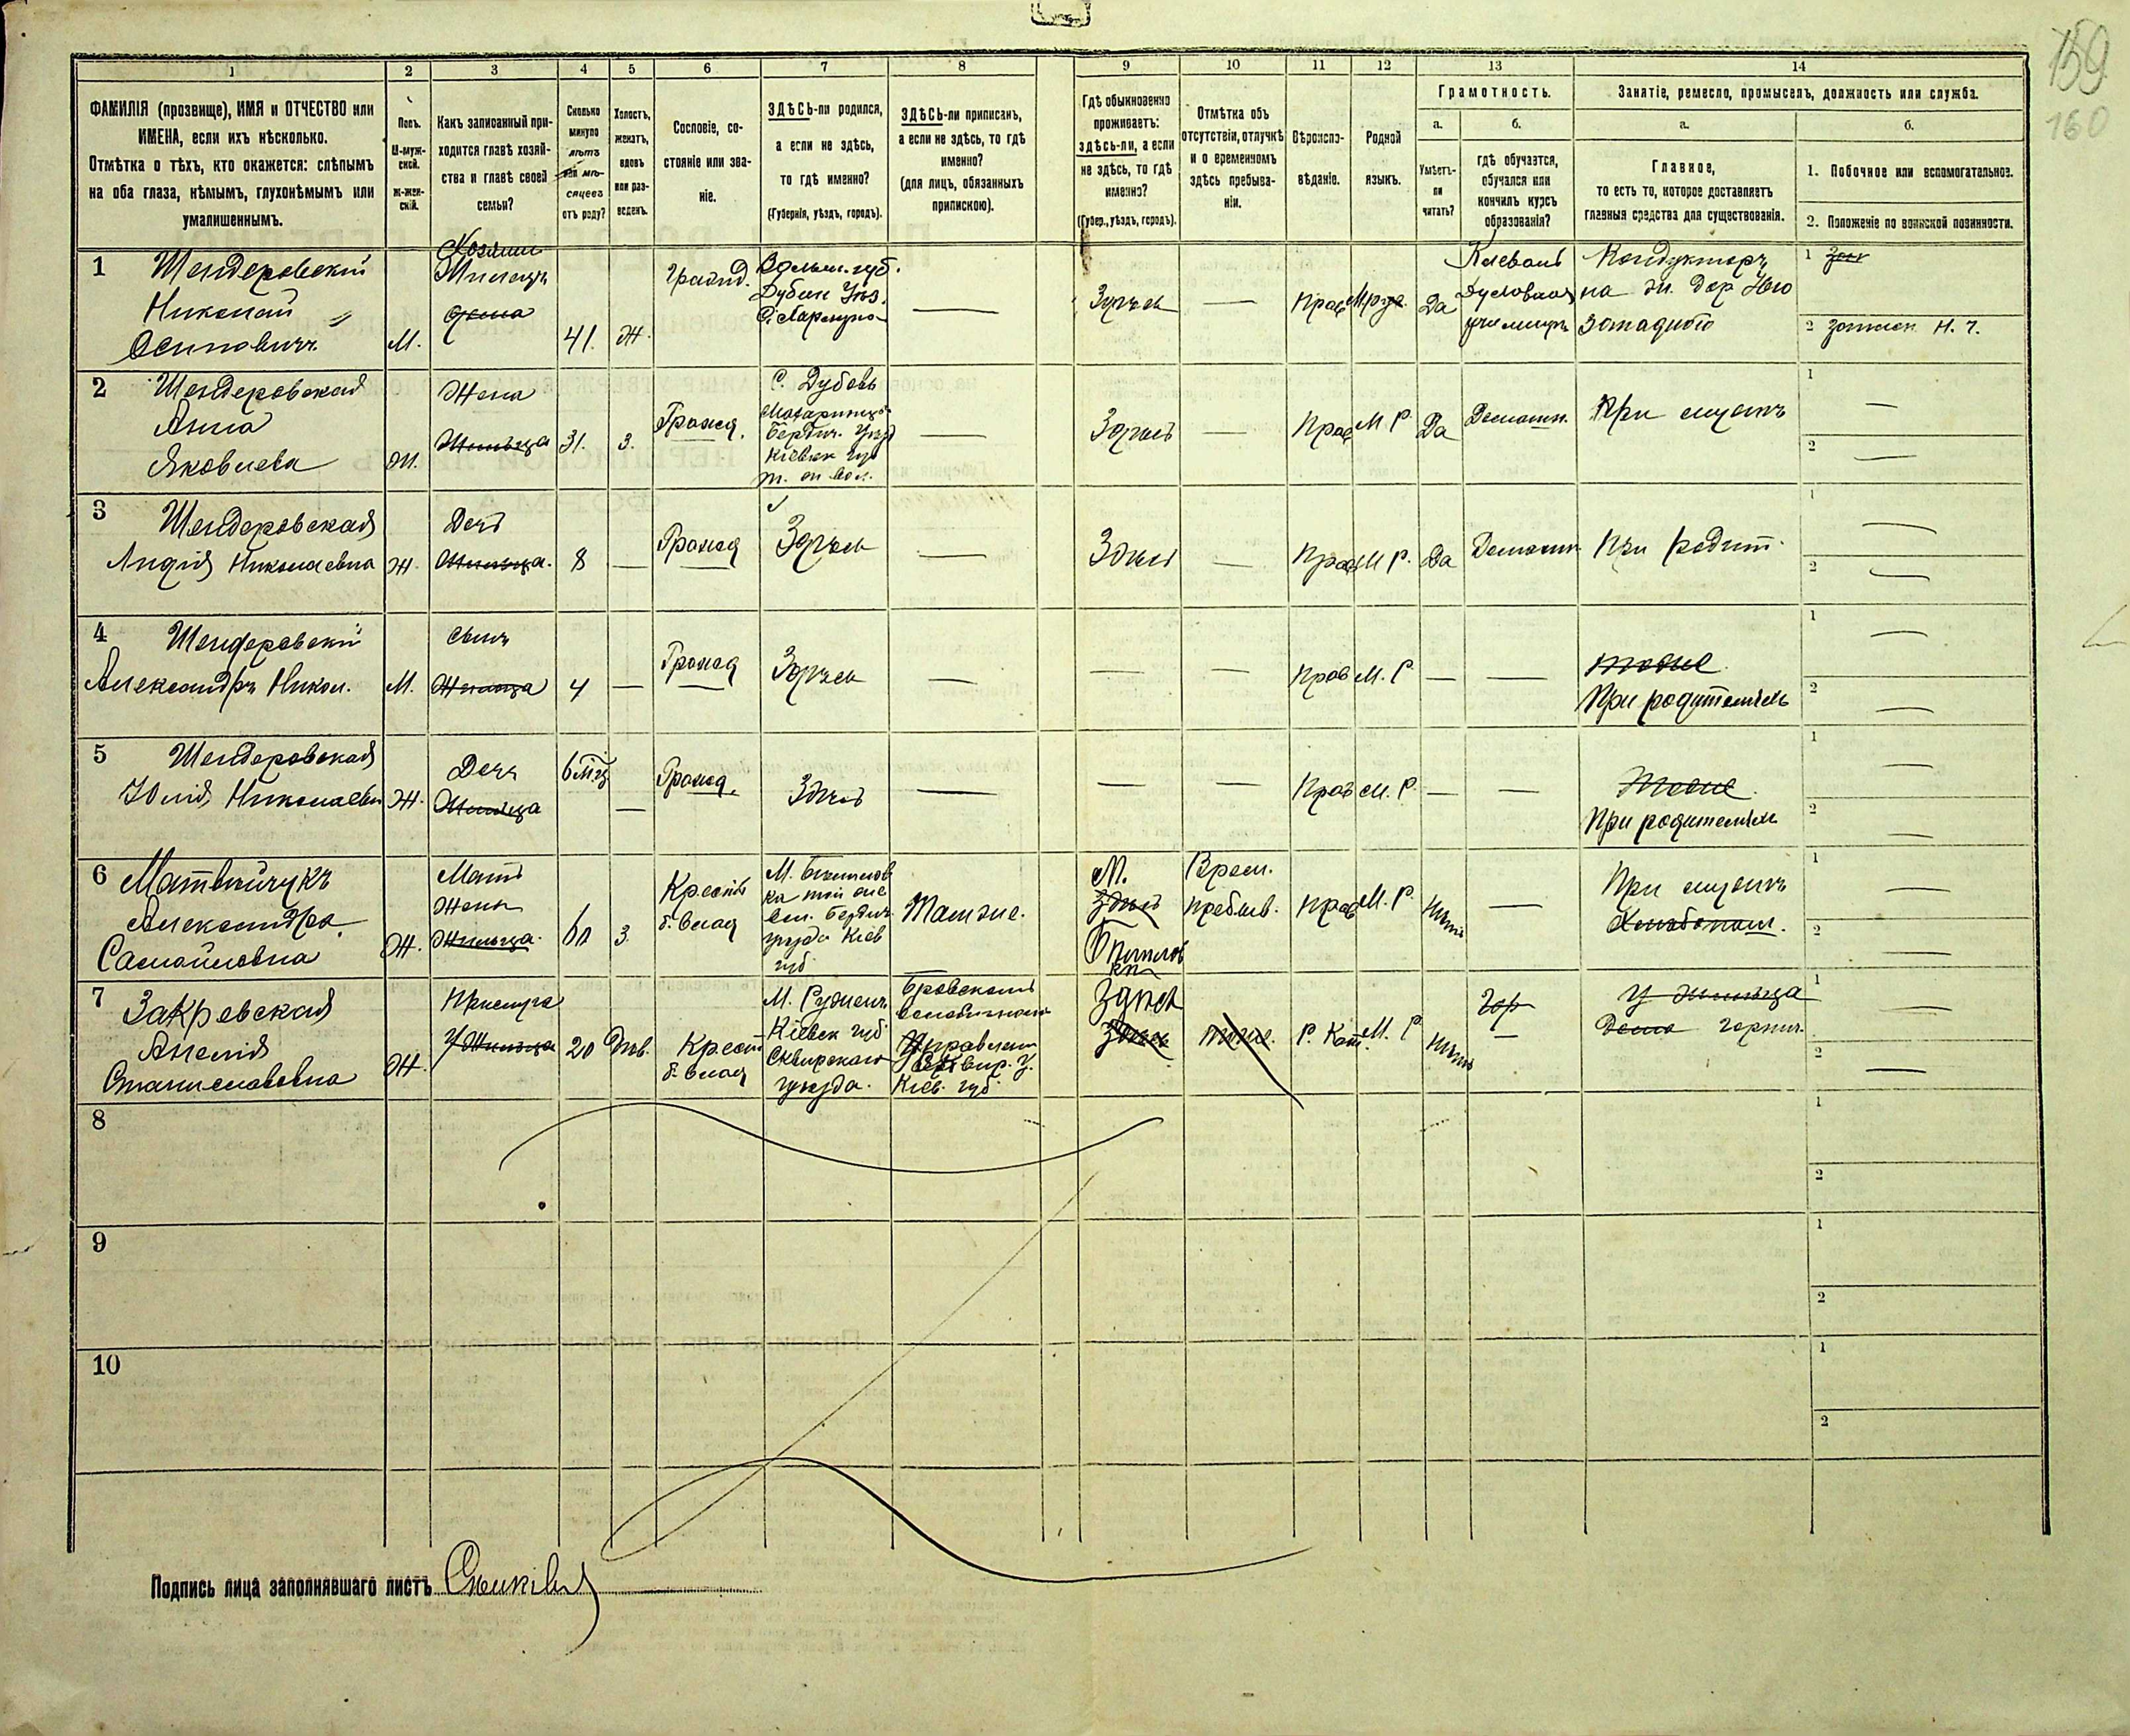 159
160
1 2 3 4 5 6 7 8 9 10 11 12 13 14
ФАМИЛІЯ (прозвище), ИМЯ и ОТЧЕСТВО или
ИМЕНА, если ихъ нѣсколько.
Отмѣтка о тѣхъ, кто окажется: слѣпымъ
на оба глаза, нѣмымъ, глухонѣмымъ или
умалишеннымъ.
Полъ.
М-муж-
ской.
Ж-жен-
скій.
Какъ записанный при-
ходится главѣ хозяй-
ства и главѣ своей
семьи?
Сколько
минуло
лѣтъ
или мѣ-
сяцевъ
отъ роду?
Холостъ,
женатъ,
вдовъ
или раз-
веденъ.
Сословіе, со-
стояніе или зва-
ніе.
ЗДѢСЬ-ли родился,
а если не здѣсь,
то гдѣ именно?
(Губернія, уѣздъ, городъ).
ЗДѢСЬ-ли приписанъ,
а если не здѣсь, то гдѣ
именно?
(для лицъ, обязанныхъ
припискою).
Гдѣ обыкновенно
проживаетъ:
здѣсь-ли, а если
не здѣсь, то гдѣ
именно?
(Губер., уѣздъ, городъ).
Отмѣтка объ
отсутствіи, отлучкѣ
и о временномъ
здѣсь пребыва-
ніи.
Вѣроиспо-
вѣданіе.
Родной
языкъ.
Грамотность.
а.
Умѣетъ-
ли
читать?
б.
гдѣ обучается,
обучался или
кончилъ курсъ
образованія?
Занятіе, ремесло, промыселъ, должность или служба.
а.
Главное,
то есть то, которое доставляетъ
главныя средства для существованія.
б.
1. Побочное или вспомогательное.
2. Положеніе по воинской повинности.
1 Шендеровскій
Николай
Осиповичъ
М.
Хозяинъ
41. Ж.
Волын. губ.
Дубен. Уѣз.
Здѣсь — Прав. Да
Кондукторъ
на
2
2 Шендеровская
Анна
Яковлева
Ж.
Жена
Жильца
31. З.
Гражд.
Бердич. Уѣзд
Кіевск губ
—
Здѣсь — Прав М. Р. Да Домашн. При мужѣ
1 —
2 —
3 Шендеровская
Лидія Николаевна Ж.
Дочь
Жильца.
8 — Гражд Здѣсь — Здѣсь — Прав М. Р. Да Домашн При родит.
1 —
2 —
4 Шендеровскій
Александръ Никол. М.
сынъ
Жильца
4 — Гражд Здѣсь — — — Прав М. Р — —
тоже
При родителяхъ
1 —
2 —
5 Шендеровская
Юлія Николаевн Ж.
Дочь
Жильца
6 мѣц — Гражд. Здѣсь — — — Прав М. Р. — —
Тоже
При родителяхъ
1 —
2 —
6 Матвійчукъ
Александра
Самойловна
Ж.
Мать
Жены
Жильца.
60 З.
Крест
б. влад
Бердич.
уѣзда Кіев
губ
Тамже.
М.
здѣсь
Врем.
пребыв.
Прав М. Р. Нѣтъ —
При мужѣ
Хлѣбопаш.
1 —
2 —
7 Закревская
Анелія
Станиславовна
Ж.
Прислуга
У Жильца
20 Дѣв.
Крест
б. влад
М. Ружинъ
Кіевск губ
Сквирскаго
уѣзда.
Кіев. губ.
Здѣсь
Здѣсь
тоже.
Р. Кат. М. Р Нѣтъ
—
У жильца
горнич.
1 —
2 —
8
1
2
9
1
2
10
1
2
Подпись лица заполнявшаго листъ